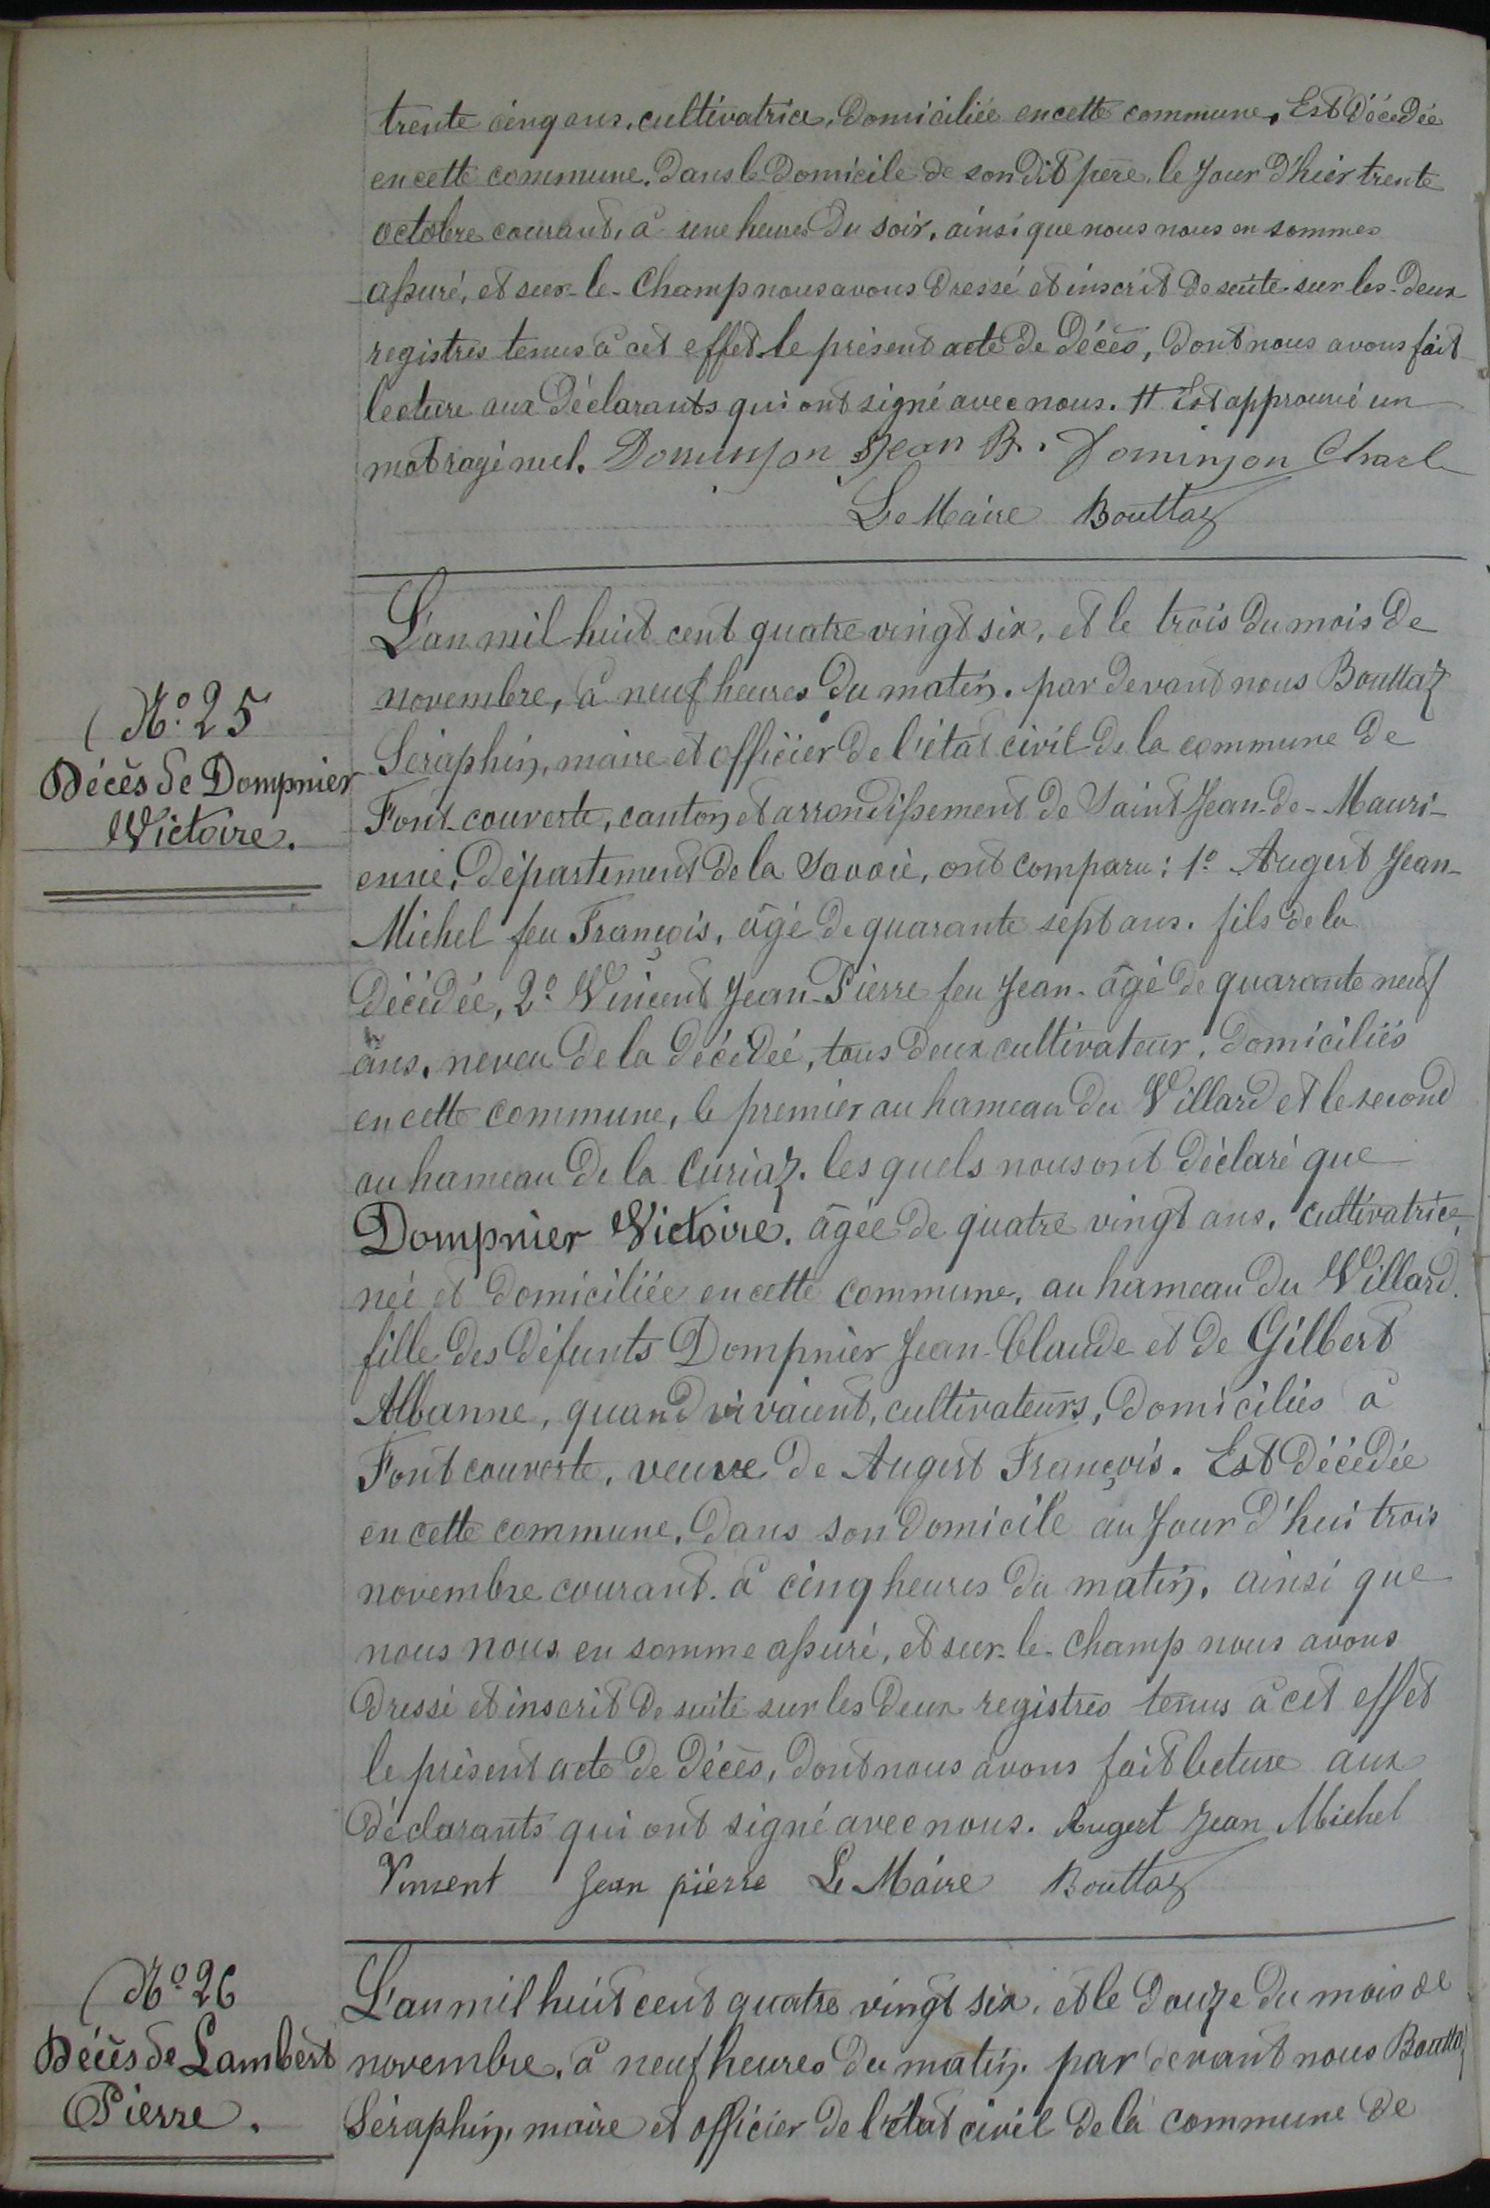 trente cinq ans, cultivatrice, domiciliée en cette commune, Est décédée
en cette commune, dans le domicile de son dit père, le jour d'hier trente
octobre courant, à une heures du soir, ainsi que nous nous en sommes
assuré, et sur-le-champ nous avons dressé et inscrit de suite sur les deux
registres tenus à cet effet le présent acte de décès, dont nous avons fait
lecture aux déclarants qui ont signé avec nous. H Est approuvé un
mot rayé nul. Dominjon Jean B. Dominjon Charl
Le Maire Bouttaz
L'an mil huit cent quatre vingt six, et le trois du mois de
novembre, à neuf heures du matin, par devant nous Bouttaz
Séraphin, maire et officier de l'état civil de la commune de
Font-couverte, canton et arrondissement de Saint-Jean-de-Mauri-
enne, département de la Savoie, ont comparu: 1º Augert Jean-
Michel feu François, âgé de quarante sept ans, fils de la
décédée, 2º Vincent Jean-Pierre feu Jean, âgé de quarante neuf
ans, neveu de la décédée, tous deux cultivateur, domiciliés
en cette commune, le premier au hameau du Villard et le second
au hameau de la Curiaz, lesquels nous ont déclaré que
Dompnier Victoire, âgée de quatre vingt ans, cultivatrice,
née et domiciliée en cette commune, au hameau du Villard,
fille des défunts Dompnier Jean-Claude et de Gilbert
Albanne, quand vivaient, cultivateurs, domiciliés à
Fontcouverte, veuve de Augert François. Est décédée
en cette commune, dans son domicile aujourd'hui trois
novembre courant, à cinq heures du matin, ainsi que
nous nous en somme assuré, et sur-le-champ nous avons
dressé et inscrit de suite sur les deux registres tenus à cet effet
le présent acte de décès, dont nous avons fait lecture aux
déclarants qui ont signé avec nous. Augert Jean Michel
Vinsent Jean pierre Le Maire Bouttaz
Nº 25
Décès de Dompnier
Victoire.
L'an mil huit cent quatre vingt six, et le douze du mois de
novembre, à neuf heures du matin, par devant nous Bouttaz
Séraphin, maire et officier de l'état civil de la commune de
Nº 26
Décès de Lambert
Pierre.